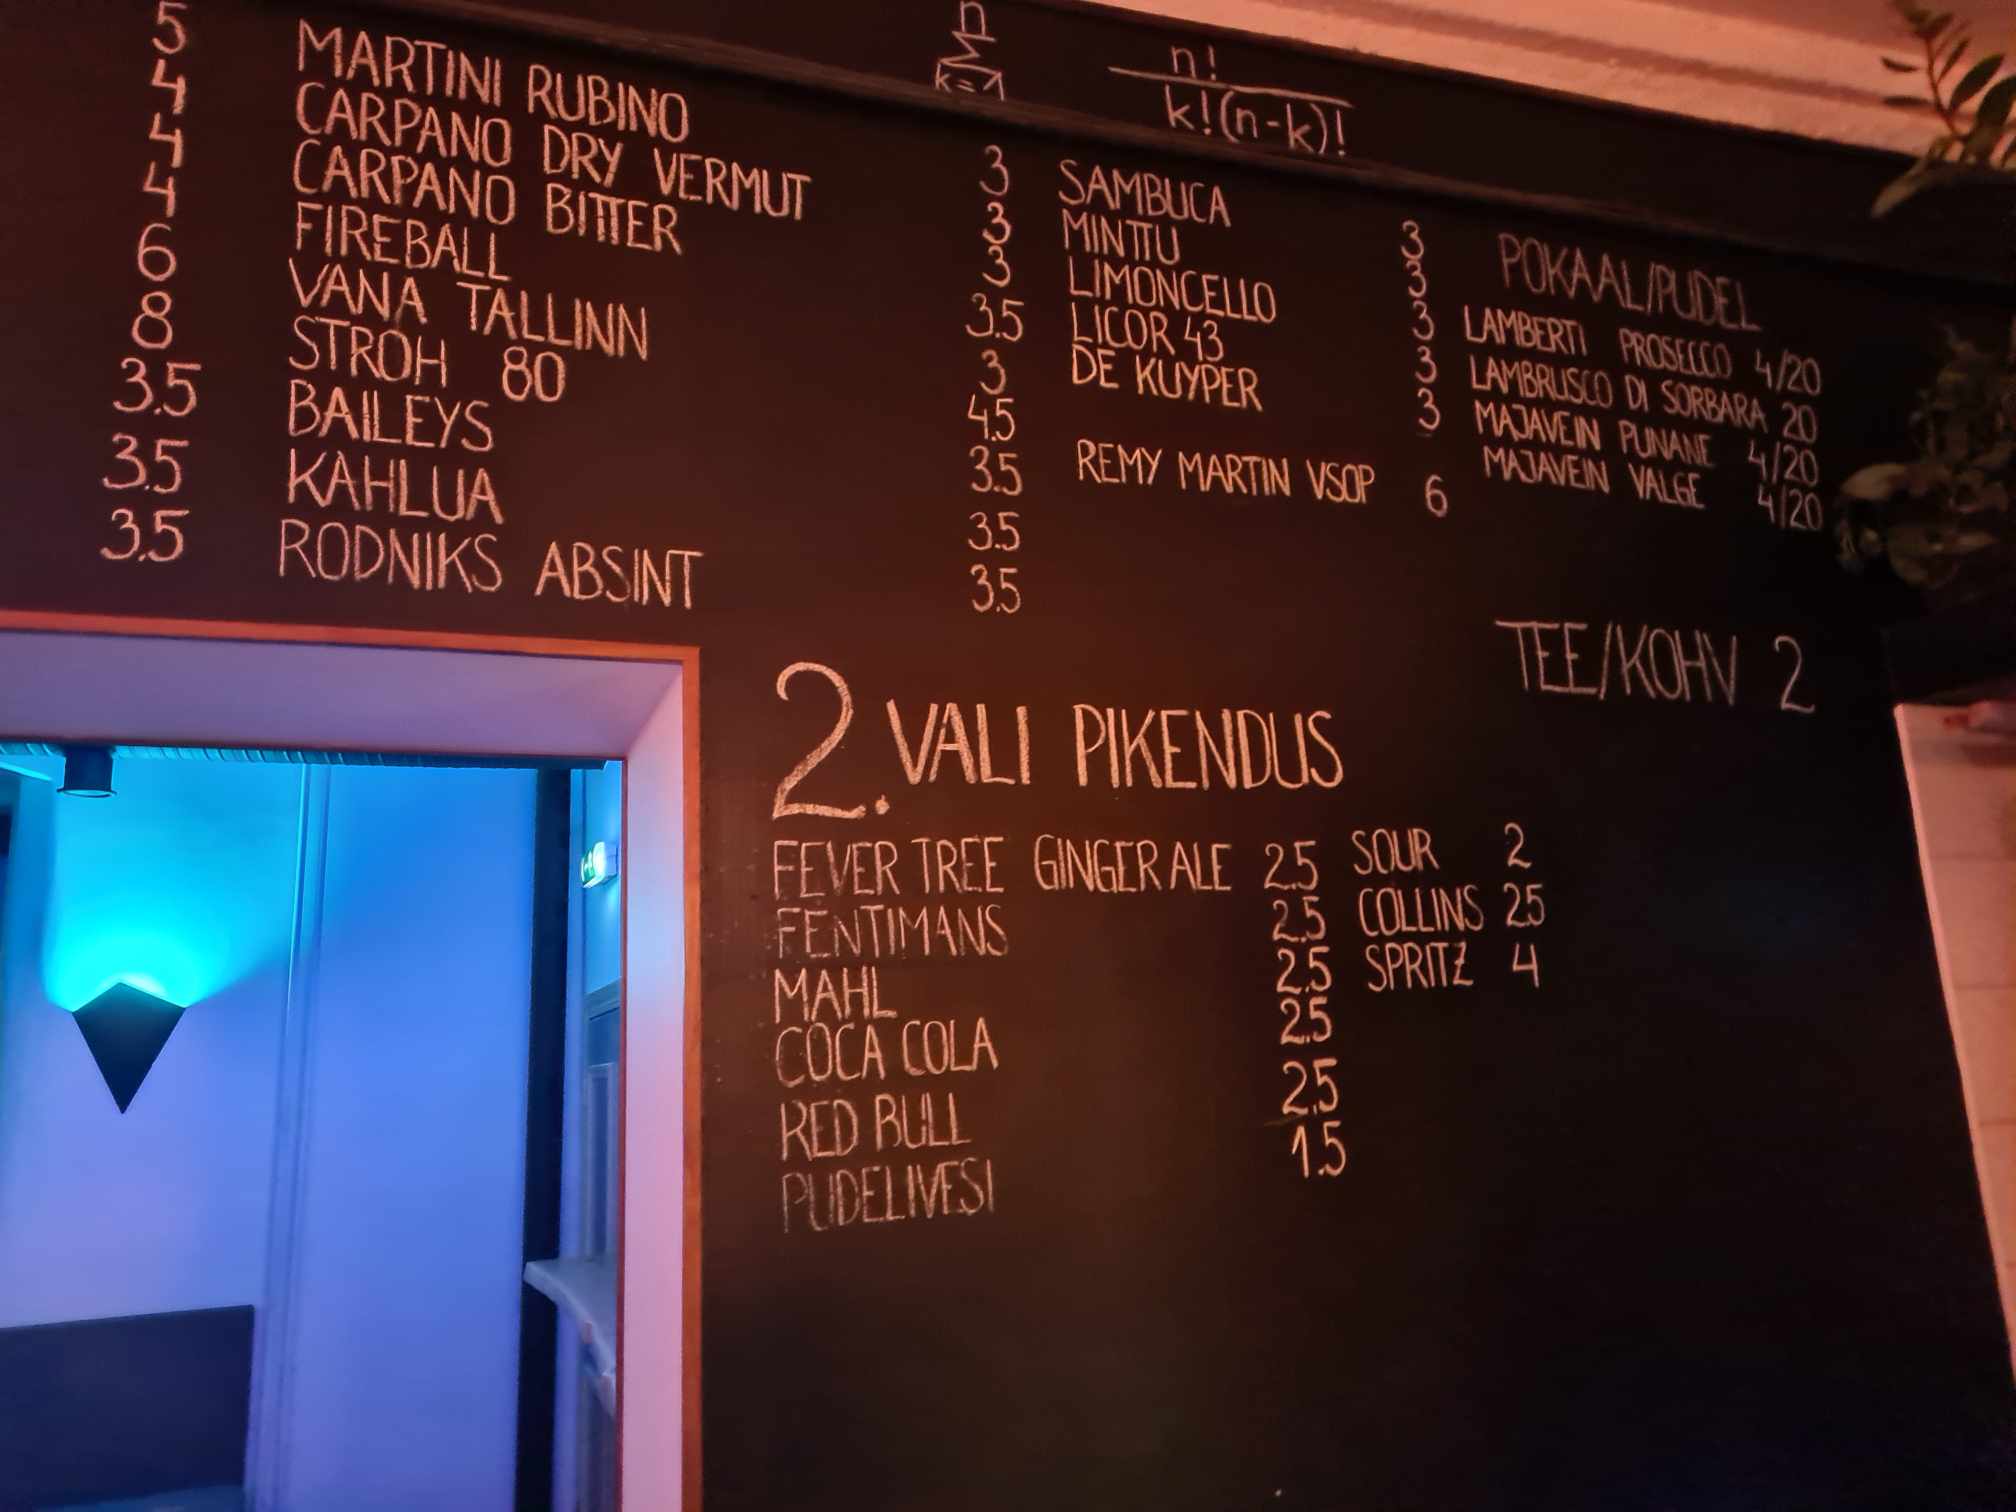 n
Σ
k=1
n!
k!(n-k)!
5
4
4
4
6
8
3.5
3.5
3.5
MARTINI RUBINO 3
CARPANO DRY VERMUT 3
CARPANO BITTER 3
FIREBALL 3.5
VANA TALLINN 3
STROH 80 4.5
BAILEYS 3.5
KAHLUA 3.5
RODNIKS ABSINT 3.5
SAMBUCA 3
MINTTU 3
LIMONCELLO 3
LICOR 43 3
DE KUYPER 3
REMY MARTIN VSOP 6
POKAAL/PUDEL
LAMBERTI PROSECCO 4/20
LAMBRUSCO DI SORBARA 20
MAJAVEIN PUNANE 4/20
MAJAVEIN VALGE 4/20
TEE/KOHV 2
2. VALI PIKENDUS
FEVER TREE GINGER ALE 2.5
FENTIMANS 2.5
MAHL 2.5
COCA COLA 2.5
RED BULL 2.5
PUDELIVESI 1.5
SOUR 2
COLLINS 2.5
SPRITZ 4